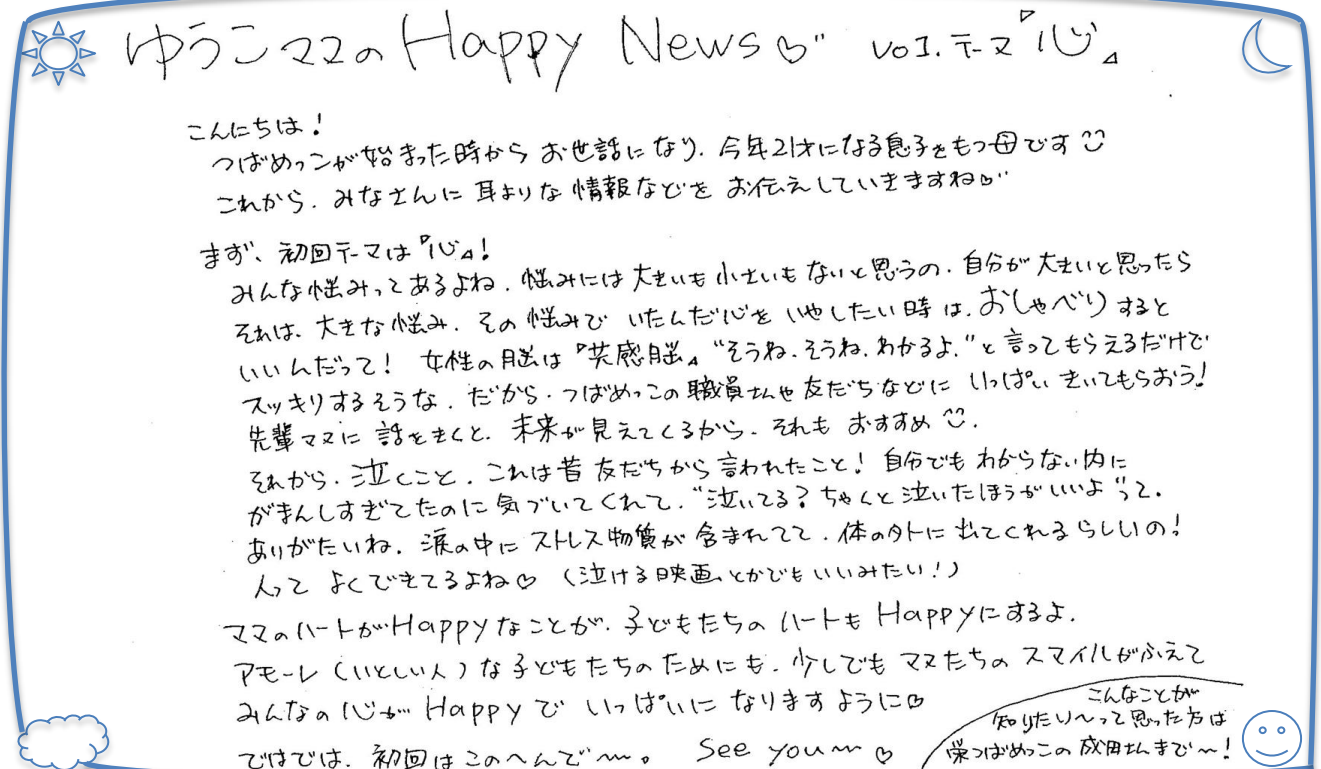 ゆうこママの Happy News♡" vol. テーマ『心』
こんにちは！
つばめっこが始まった時から お世話になり、今年21才になる息子をもつ母です
これから、みなさんに 耳よりな 情報などを お伝えしていきますね♡"
まず、初回テーマは『心』！
みんな悩みってあるよね．悩みには 大きいも小さいも ないと思うの．自分が大きいと思ったら
それは、大きな悩み．その悩みで いたんだ心を いやしたい時は、おしゃべりすると
いいんだって！ 女性の脳は『共感脳』"そうね、そうね、わかるよ．"と言ってもらえるだけで
スッキリするそうな．だから、つばめっこの職員さんや友だちなどに いっぱい きいてもらおう！
先輩ママに 話をきくと、未来が見えてくるから、それも おすすめ．
それから、泣くこと．これは昔 友だちから言われたこと！ 自分でも わからない内に
がまんしすぎてたのに 気づいてくれて、"泣いてる？ ちゃんと泣いたほうがいいよ"って．
ありがたいね．涙の中に ストレス物質が 含まれてて、体の外に 出てくれるらしいの！
人って よくできてるよね♡ (泣ける映画とかでもいいみたい！)
ママのハートがHappyなことが、子どもたちの ハートも Happyにするよ．
アモーレ (いとしい人) な 子どもたちのためにも、少しでも ママたちの スマイルがふえて
みんなの 心が Happyで いっぱいに なりますように♡
ではでは、初回は このへんで〜。 See you〜 ♡
こんなことが
知りたい〜って思った方は
栄つばめっこの 成田さんまで〜！